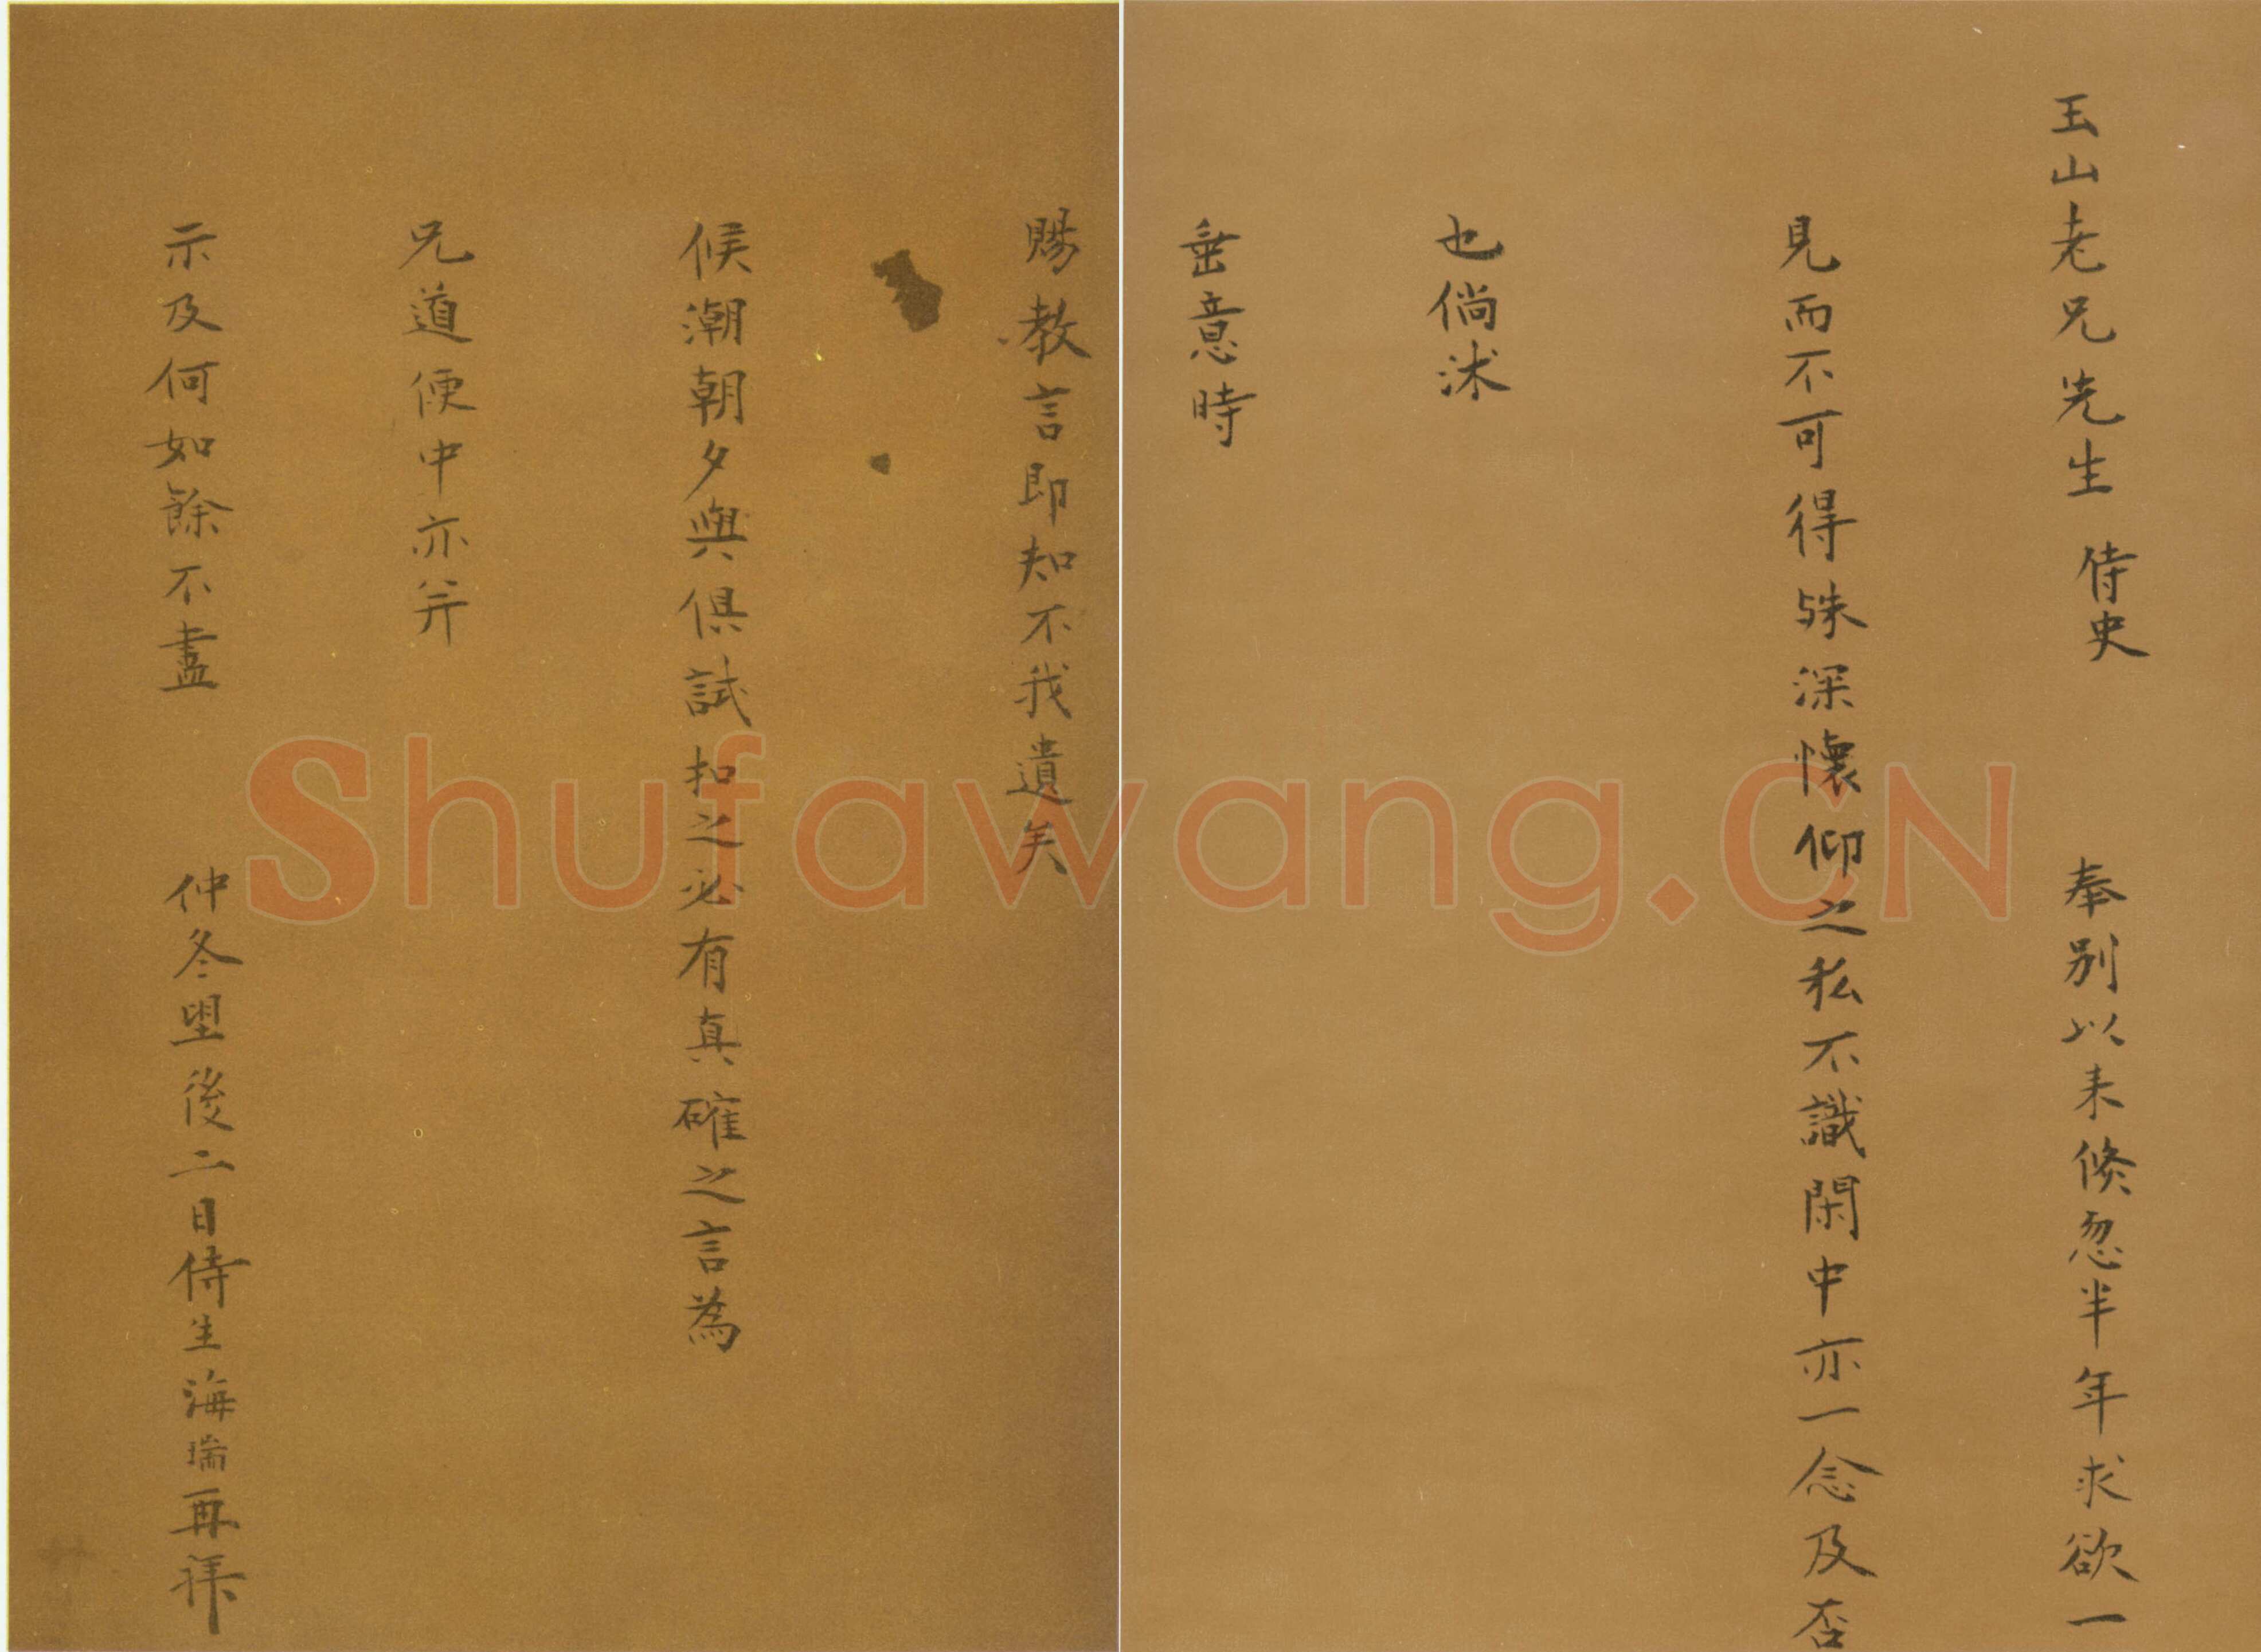 玉山老兄先生 侍史 奉別以来倏忽半年求欲一
見而不可得殊深懷仰之私不識閑中亦一念及否
也倘沭
垂意時
賜教言即知不我遺矣
候潮朝夕與俱試扣之必有真確之言為
兄道便中亦并
示及何如餘不盡 仲冬望後二日侍生海瑞再拜
Shufawang.CN